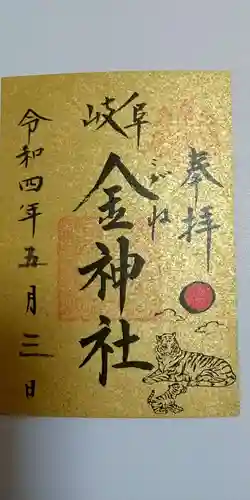 奉拝
岐阜
こがね
金神社
令和四年五月三日